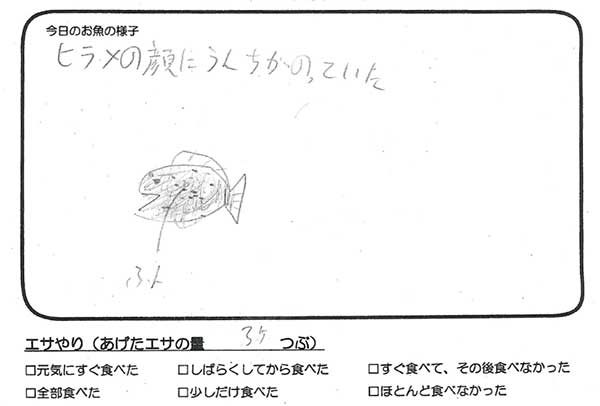 今日のお魚の様子
ヒラメの顔にうんちがのっていた
ふん
エサやり（あげたエサの量 つぶ）
□元気にすぐ食べた □しばらくしてから食べた □すぐ食べて、その後食べなかった
□全部食べた □少しだけ食べた □ほとんど食べなかった